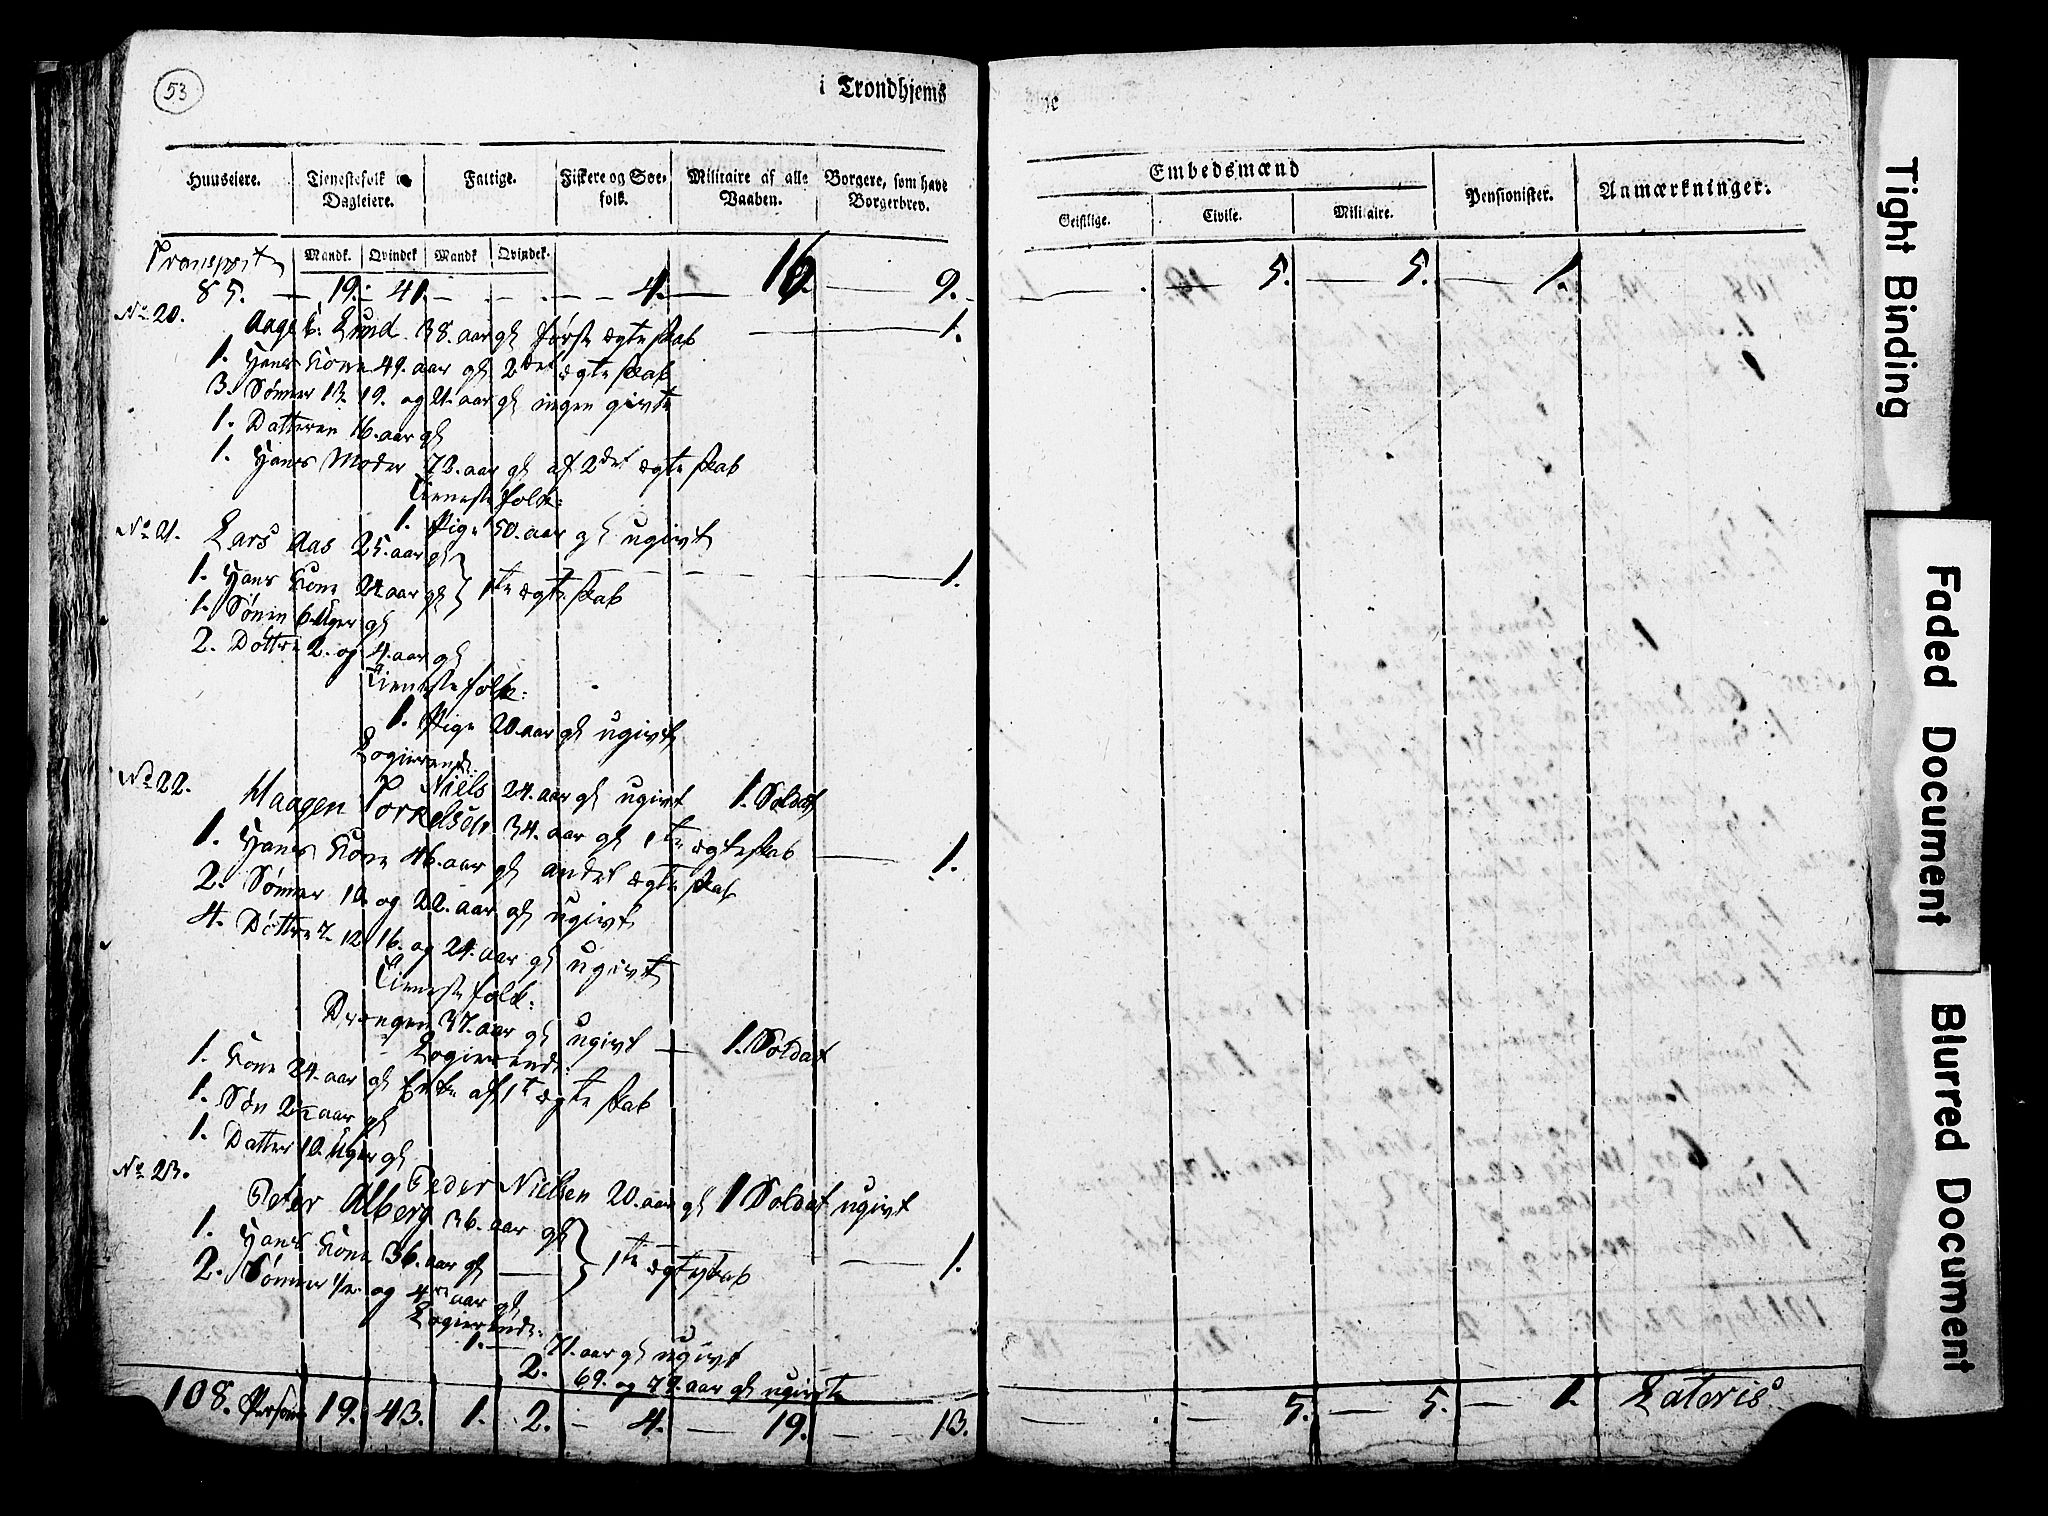 53
i Trondhjems
Huuseiere. Tienestefolk Dagleiere. Fattige. Fiskere og Søefolk. Militaire af alle Vaaben. Borgere, som have Borgerbrev.
Mandk. Qvindek Mandk Qvindek.
Embedsmænd Pensionister. Anmærkninger.
Geistlige. Civile. Militaire.
Transport
85. 19. 41. 4. 16. 9. 5. 5. 1.
No 20. Aage Lund 38. aar gl første ægteskab 1.
1. Hans Kone 49. aar gl 2det ægteskab
3. Sønner 13. 19. og 21. aar gl ingen givte
1. Datteren 16. aar gl
1. Hans Moder 73. aar gl af 2det ægteskab
Tienestefolk:
1. Pige 50. aar gl ugivt
No 21. Lars Aas 25. aar gl
1. Hans Kone 24 aar gl 1te ægteskab 1.
1. Sønen 6 Uger gl
2. Døttre 2. og 4. aar gl
Tienestefolk:
1. Pige 20. aar gl ugivt
Logierende:
Niels 24. aar gl ugivt 1. Soldat
No 22. Haagen Torkelsen 34. aar gl 1te ægteskab
1. Hans Kone 46. aar gl andet ægteskab 1.
2. Sønner 10. og 22. aar gl ugivt
4. Døttre 7. 12 16. og 24. aar gl ugivt
Tienestefolk:
Drengen 37. aar gl ugivt 1. Soldat
Logierende:
1. Kone 24. aar gl Enke af 1te ægteskab
1. Søn 2 1/2 aar gl
1. Datter 10. Uger gl
Peder Nielsen 20. aar gl 1 Soldat ugivt
No 23. Peter Alberg 36. aar gl
1. Hans Kone 36. aar gl 1te ægteskab 1.
2. Sønner 1/2. og 4 aar gl
Logierende:
1. 71. aar gl ugivt
2. 69. og 79. aar gl ugivte
108. Persone 19. 43. 1. 2. 4. 19. 13. 5. 5. 1. Lateris
Tight Binding
Faded Document
Blurred Document